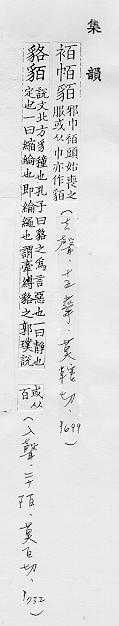 集韻
袹帞貊 邪巾袹頭始喪之服或从巾亦作貊（入聲、十五舝、莫轄切、1699）
貉貊 說文北方豸種也孔子曰貉之爲言惡也一曰靜也定也一曰縮綸也即綸繩也謂牽縛貉之郭璞說或从百（入聲、二十陌、莫白切、1732）